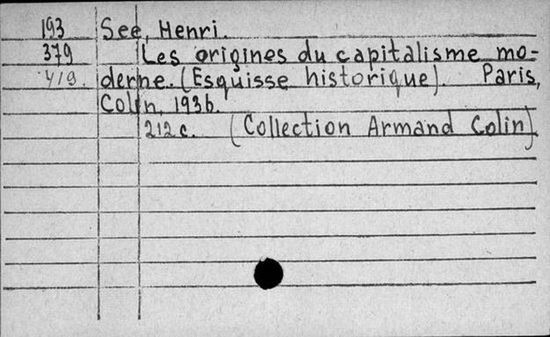 193 Seé, Henri.
379 Les origines du capitalisme mo-
419. derne. (Esquisse historique). Paris,
Colin, 1936.
212 c. (Collection Armand Colin).